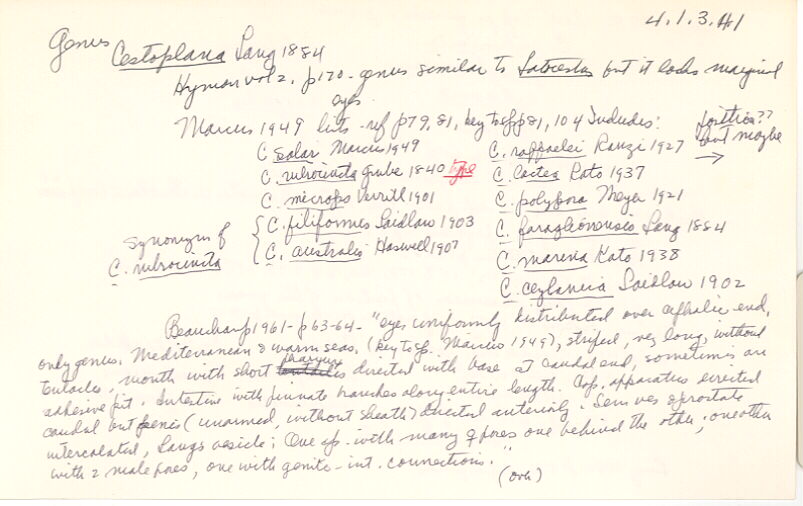 4.1.3.A1
Genus Cestoplana Lang 1884
Hyman vol 2, p170 - genus similar to but it lacks marginal
eyes
Marcus 1949 lists - ref p79, 81, key to spp 81, 104 Includes:
C. salar Marcus 1949
C. rubrocincta Grube 1840 type
C. microps Verrill 1901
C. filiformis Laidlaw 1903
C. australis Haswell 1907
synonyms of
C. rubrocincta
C. raffaelei Ranzi 1927
C. lactea Kato 1937
C. polypora Meyer 1921
C. faraglionensis Lang 1884
C. marina Kato 1938
C. ceylanica Laidlaw 1902
but maybe
→
Beauchamp 1961 - p63-64 - "eyes uniformly distributed over cephalic end,
only genus. Mediterranean & warm seas. (key to sp. Marcus 1949), striped, very long, without
tentacles, mouth with short pharynx directed with base at caudal end, sometimes an
adhesive pit. Intestine with pinnate branches along entire length. Cop. apparatus directed
caudal but penis (unarmed, without sheath) directed anteriorly. Sem ves & prostate
intercalated, Langs vesicle; One sp. with many ♀ pores one behind the other; another
with 2 male pores, one with genito-int. connections."
(over)